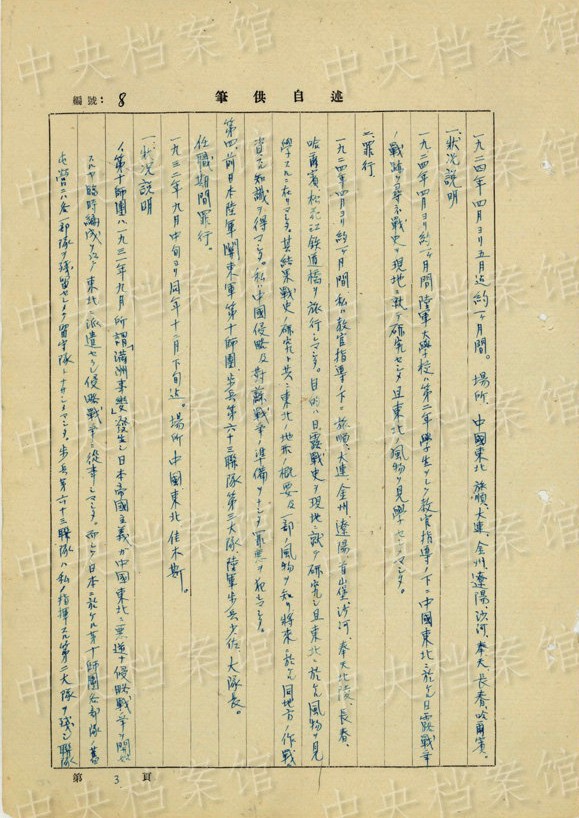 編號：8
筆供自述
一九二四年四月ヨリ五月迄約一ヶ月間。場所、中國東北 旅順、大連、金州、遼陽、沙河、奉天、長春、哈爾賓。
一、狀况説明
一九二四年四月ヨリ約一ヶ月間陸軍大學校ハ第二年學生ヲシテ教官指導ノ下ニ中國東北ニ於ケル日露戰爭
ノ戰跡ヲ尋ネ戰史ヲ現地ニ就テ研究セシメ且東北ノ風物ヲ見學セシメマシタ。
二、罪行。
一九二四年四月ヨリ約一ヶ月間私ハ教官指導ノ下ニ旅順、大連、金州、遼陽、首山堡、沙河、奉天北陵、長春、
哈爾賓松花江鉄道橋ヲ旅行シマシタ。目的ハ日露戰史ヲ現地ニ就テ研究シ且東北ニ於ケル風物ヲ見
學スルニ在リマシタ。其結果戰史ノ研究ト共ニ東北ノ地形ノ概要及一部ノ風物ヲ知リ將來ニ於ケル同地方ノ作戰
資スル知識ヲ得マシタ。私ハ中國侵略及対蘇戰爭ノ準備ヲナシタ罪悪ヲ犯シマシタ。
第四、前日本陸軍關東軍第十師團、歩兵第六十三聯隊第二大隊陸軍歩兵少佐、大隊長。
任職期間罪行。
一九三二年九月中旬ヨリ同年十二月下旬迄。場所中國東北佳木斯。
一、狀况説明
イ、第十師團ハ一九三一年九月所謂「滿洲事變」發生シ日本帝國主義ガ中國東北ニ無道ナ侵略戰爭ヲ開始
スルヤ臨時編成ヲ以テ東北ニ派遣セラレ侵略戰爭ニ從事シマシタ。而シテ日本ニ於ケル第十師團各部隊ノ舊
屯營ニハ各一部隊ヲ殘留セシメテ留守隊トナサシメマシタ。歩兵第六十三聯隊ハ私ノ指揮スル第二大隊ヲ殘シ聯隊
第3頁
中央档案馆